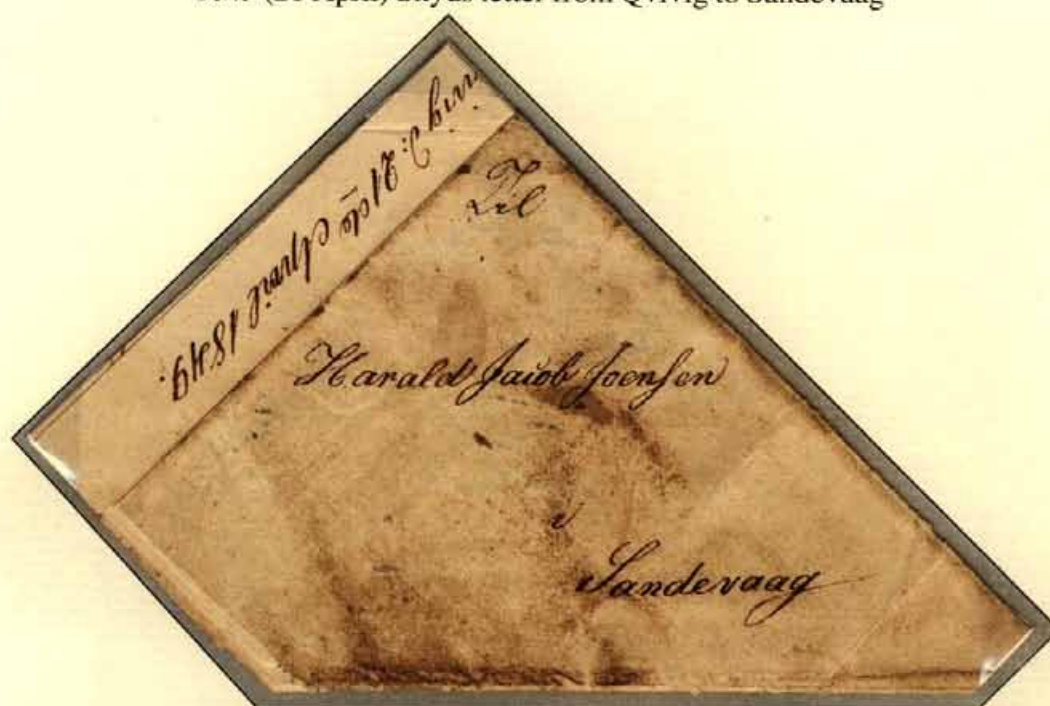 (21 April) letter from Qvivig to Sandevaag
d: 21de April 1849.
Til
Harald Jacob Joensen
i
Sandevaag